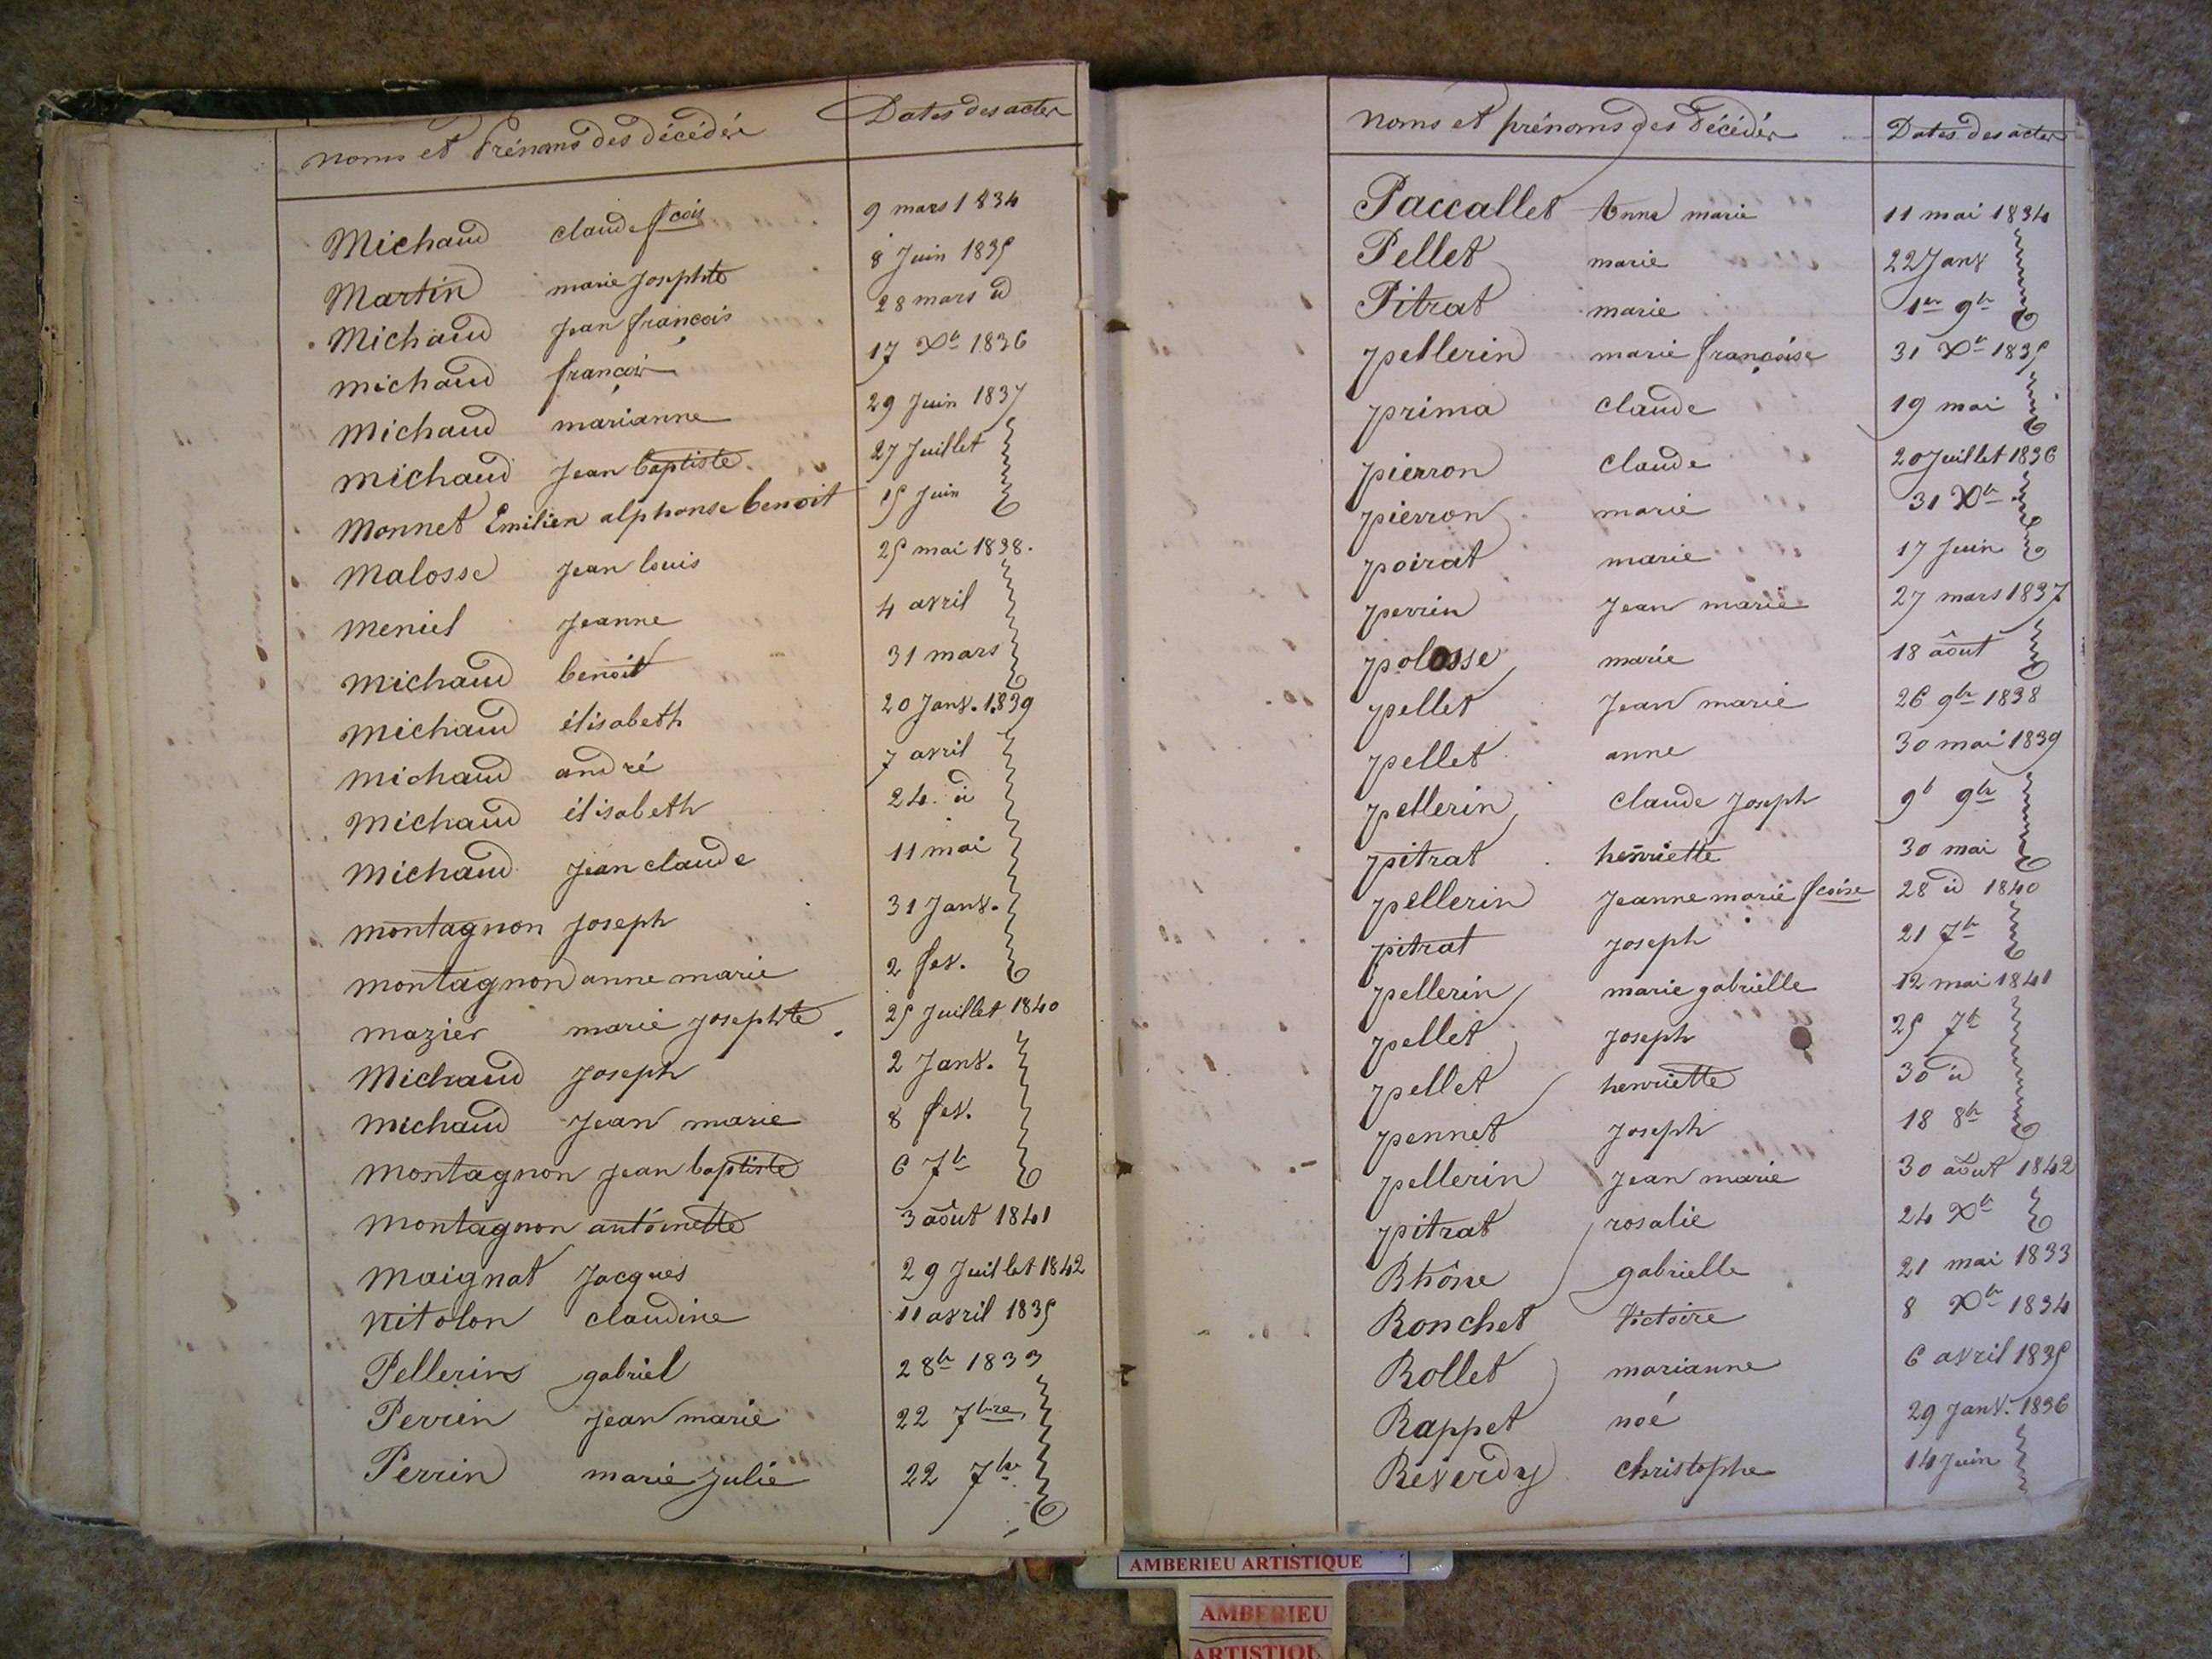 noms et Prénoms des décédés Dates des actes
Michaud claude fcois 9 mars 1834
Martin marie Josephte 8 Juin 1835
Michaud Jean françois 28 mars id
michaud françois 17 Xbre 1836
Michaud marianne 29 Juin 1837
michaud Jean baptiste 27 Juillet
Monnet Emilien alphonse benoit 15 Juin
Malosse Jean louis 25 mai 1838.
Meniel Jeanne 4 avril
michaud benoit 31 mars
michaud élisabeth 20 Janv. 1839
michaud andré 7 avril
michaud élisabeth 24 id
Michaud Jean claude 11 mai
montagnon Joseph 31 Janv.
montagnon anne marie 2 fev.
mazier marie Josephte 25 Juillet 1840
Michaud Joseph 2 Janv.
michaud Jean marie 8 fev.
montagnon Jean baptiste 6 7br
montagnon antoinette 3 août 1841
Maignat Jacques 29 Juillet 1842
Nitolon claudine 11 avril 1835
Pellerins gabriel 2 8br 1833
Perrin Jean marie 22 7bre
Perrin marie Julie 22 7bre
Noms et prénoms des Décédés Dates des actes
Paccallet Anne marie 11 mai 1834
Pellet marie 22 Janv
Pitrat marie 1er 9br
pellerin marie françoise 31 Xbr 1835
prima claude 19 mai
pierron claude 20 Juillet 1836
pierron marie 31 Xbr
poirat marie 17 Juin
perrin Jean marie 27 mars 1837
polosse marie 18 août
pellet Jean marie 26 9br 1838
pellet anne 30 mai 1839
pellerin claude Joseph 9b 9br
pitrat henriette 30 mai
pellerin Jeanne marie fcoise 28 id 1840
pitrat Joseph 21 7br
pellerin marie gabrielle 12 mai 1841
pellet Joseph 25 7b
pellet henriette 30 id
pennet Joseph 18 8br
pellerin Jean marie 30 août 1842
pitrat rosalie 24 Xbr
Rhône gabrielle 21 mai 1833
Ronchet Victoire 8 Xbr 1834
Rollet marianne 6 avril 1835
Rappet noé 29 Janv. 1836
Reverdy christophe 14 Juin
AMBERIEU ARTISTIQUE
AMBERIEU
ARTISTIQU